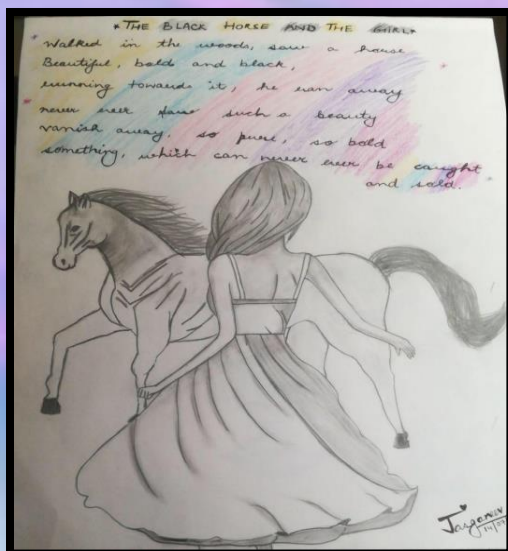 *THE BLACK HORSE AND THE GIRL*
Walked in the woods, saw a horse
Beautiful, bold and black,
running towards it, he ran away
never ever saw such a beauty
vanish away. so pure, so bold
something, which can never ever be caught
and sold.